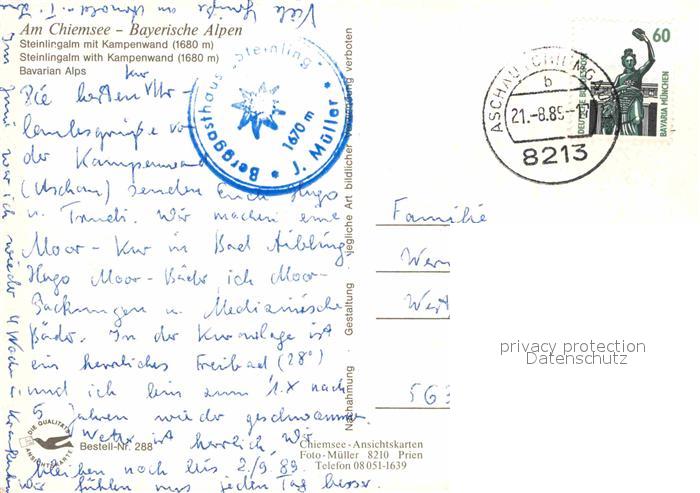 Viele Grüße an
Am Chiemsee – Bayerische Alpen
Steinlingalm mit Kampenwand (1680 m)
Steinlingalm with Kampenwand (1680 m)
Bavarian Alps
Berggasthaus „Steinling"
1670 m
J. Müller
60
DEUTSCHE BUNDESPOST
BAVARIA MÜNCHEN
ASCHAU I. CHIEMGAU
b
21.-8.89-1
8213
Kur
Die besten Ur-
laubsgrüße vo
der Kampenwand
(Aschau) senden Euch Hugo
u. Trudi. Wir machen eine
Moor-Kur in Bad Aibling
Hugo Moor-Bäder ich Moor-
Packungen u. Medizinische
Bäder. In der Kuranlage ist
ein herrliches Freibad (28°)
und ich bin zum 1.X nach
5 Jahren wieder geschwommen.
Wetter ist herrlich, Wir
bleiben noch bis 2./9.89.
Wir fühlen uns jeden Tag besser.
Im Juni war ich wieder 4 Wochen i. Krankenh
Familie
Wern
West
563
Nachahmung Gestaltung jegliche Art bildlicher Verwendung verboten
DIE QUALITÄTS
ANSICHTSKARTE
Bestell-Nr. 288
Chiemsee-Ansichtskarten
Foto-Müller 8210 Prien
Telefon 08051-1639
privacy protection
Datenschutz